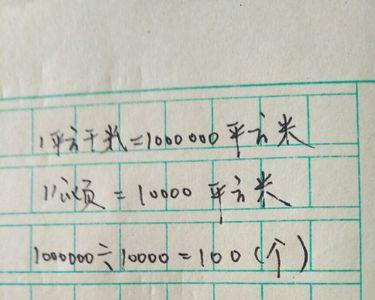 1平方千米=1000000平方米
1公顷=10000平方米
1000000÷10000=100(个)